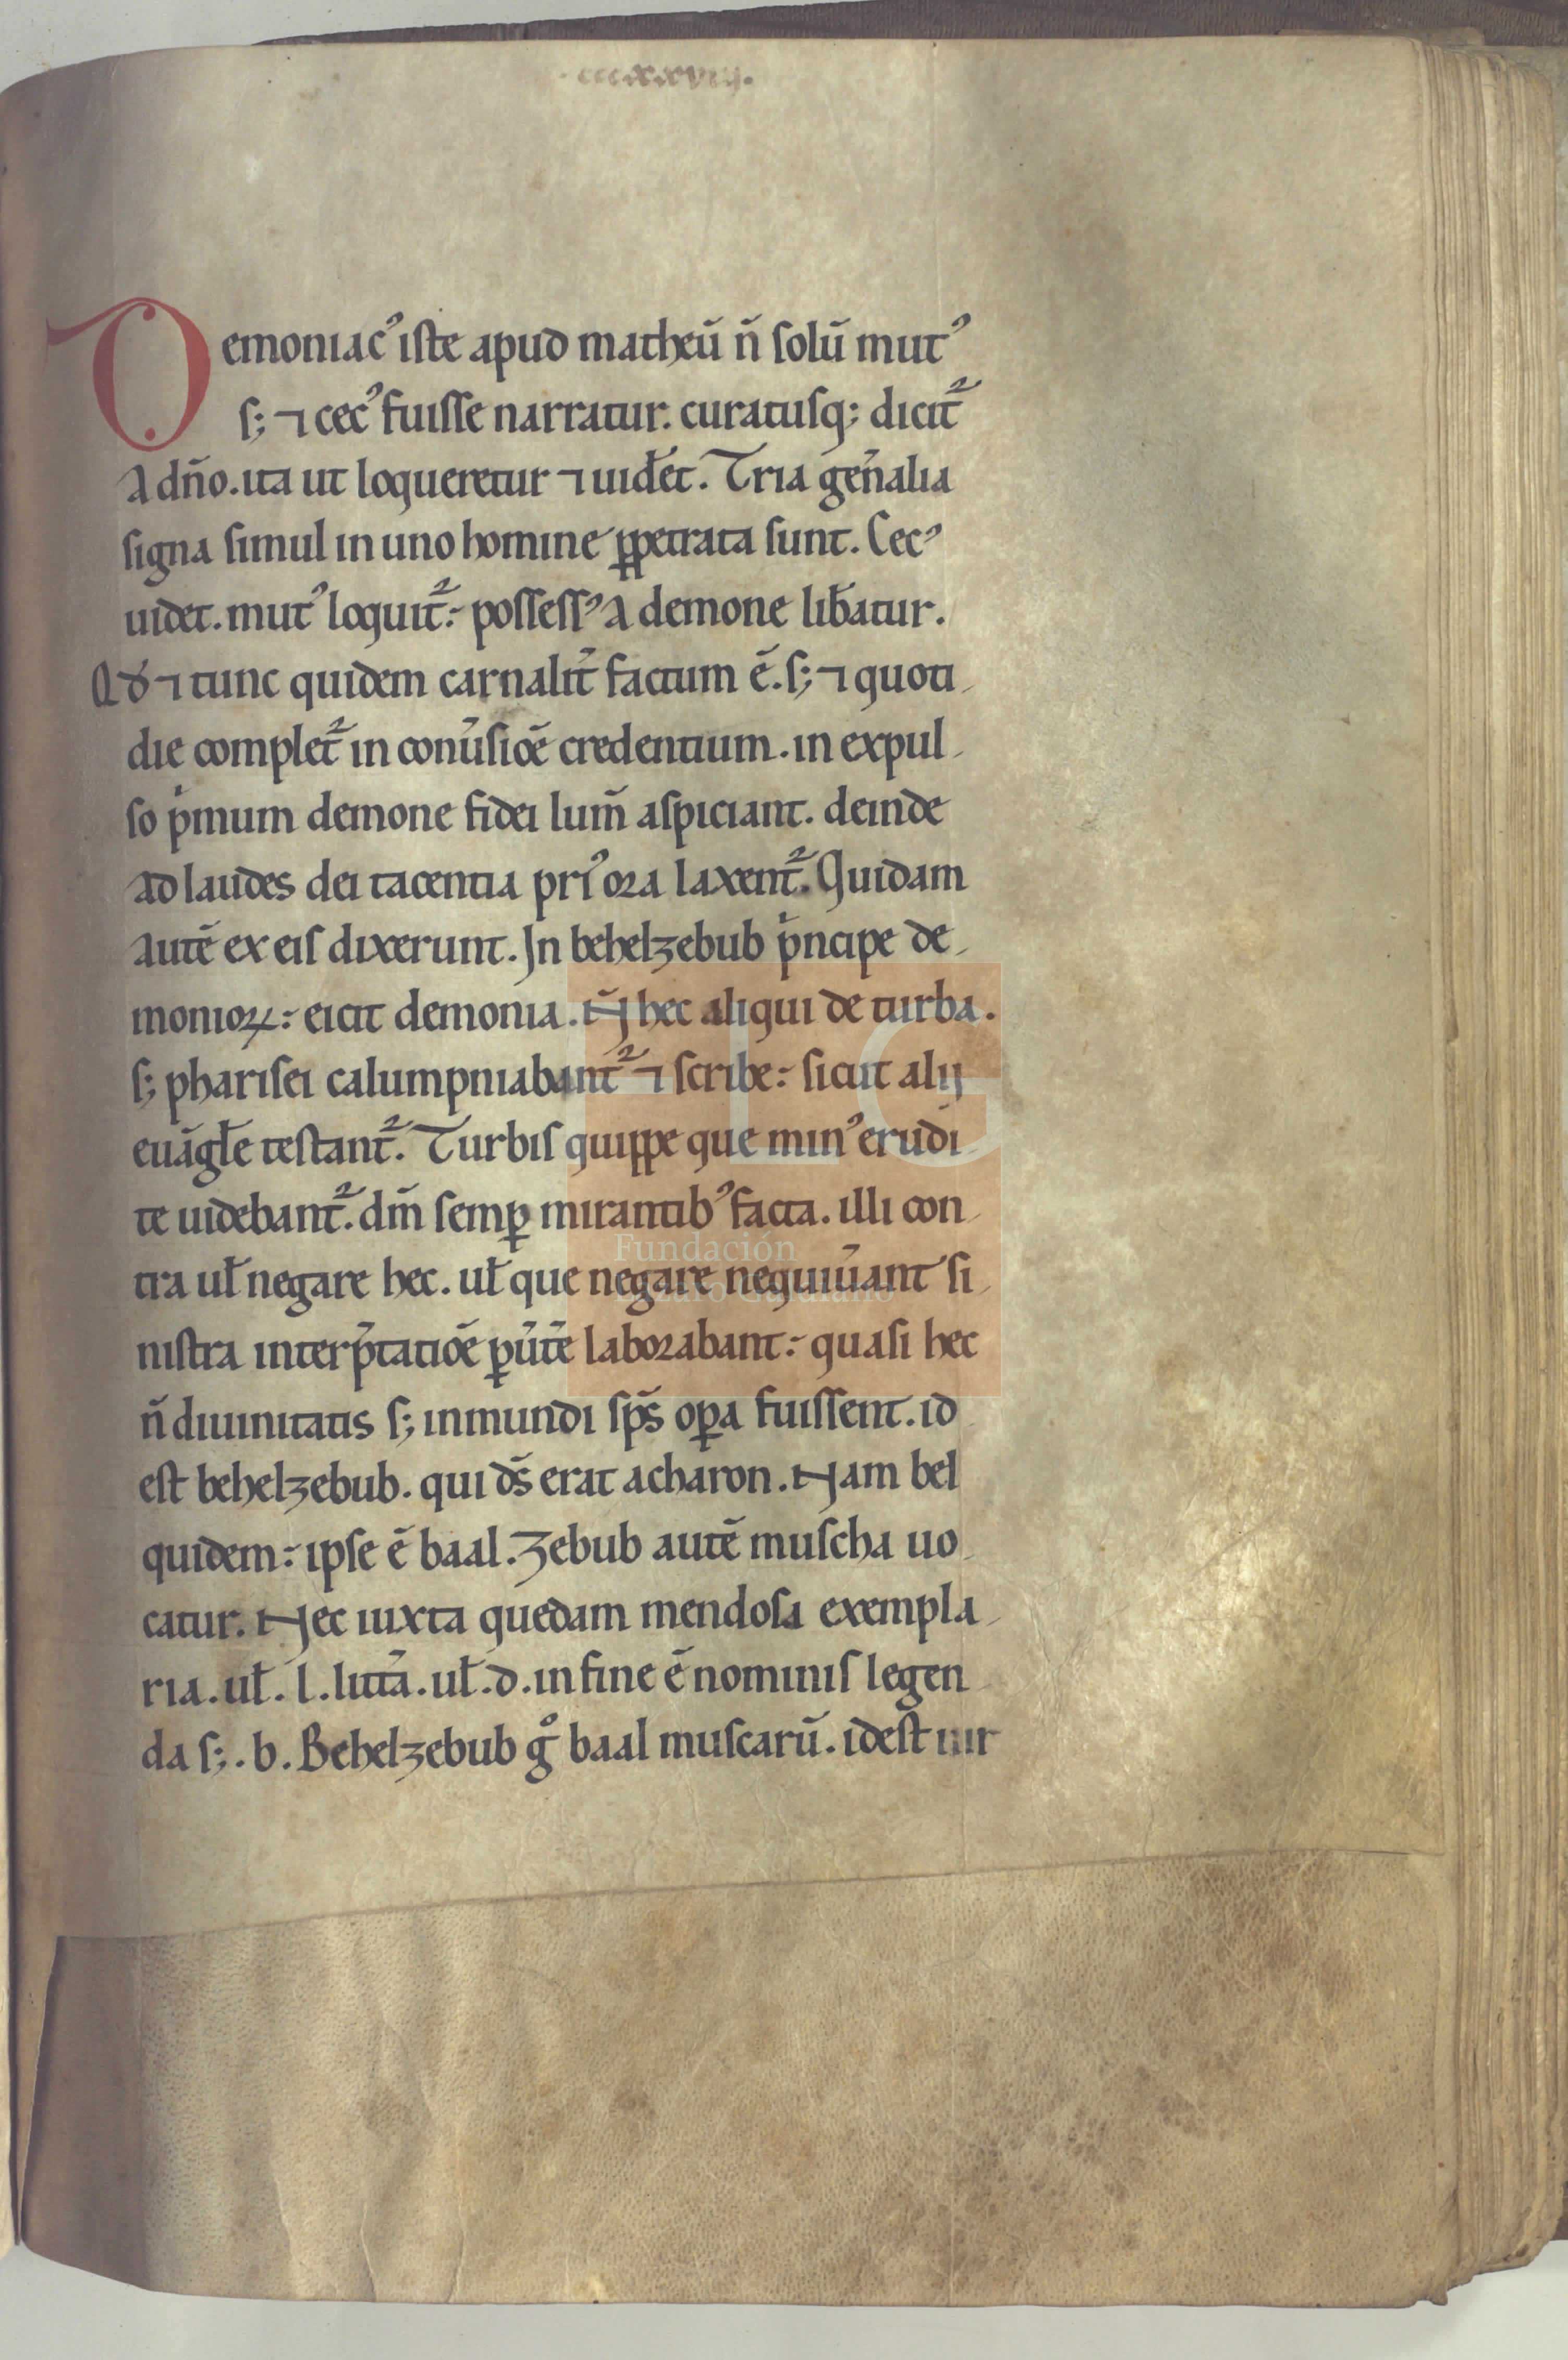 ·ccxxxviiij·
Demoniacꝰ iste apud matheū n̄ solū mutꝰ
s; ⁊ cecꝰ fuisse narratur. curatusq; dicit᷑
a dn̄o. ita ut loqueretur ⁊ uid̾et. Tria gen̾alia
signa simul in uno homine ꝑpetrata sunt. Cecꝰ
uidet. mutꝰ loquit᷑: possessꝰ a demone lib̾atur.
Qđ ⁊ tunc quidem carnalit̾ factum ē. s; ⁊ quoti-
die complet᷑ in conu̾sioē credentium. in expul-
so pͥmum demone fidei lum̄ aspiciant. deinde
ad laudes dei tacentia priꝰ ora laxent᷑. Quidam
autē ex eis dixerunt. In behelzebub pͥncipe de-
monioꝝ: eicit demonia. N̄ hec aliqui de turba.
s; pharisei calumpniabant᷑ ⁊ scribe: sicut alij
euāgłe testant᷑. Turbis quippe que minꝰ erudi-
te uidebant᷑. dn̄i semꝑ mirantibꝰ facta. illi con-
tra uł negare hec. uł que negare nequiu̾ant si-
nistra interp̾tatioē ꝑu̾t̾e laborabant: quasi hec
n̄ diuinitatis s; inmundi sp̄s oꝑa fuissent. id
est behelzebub. qui d̄s erat acharon. Nam bel
quidem: ipse ē baal. Zebub autē muscha uo-
catur. Nec iuxta quedam mendosa exempla-
ria. uł. l. litt̾a. uł. d. in fine ē nominis legen-
da s;. b. Behelzebub gͦ baal muscarū. idest uir
Fundación
Lázaro Galdiano